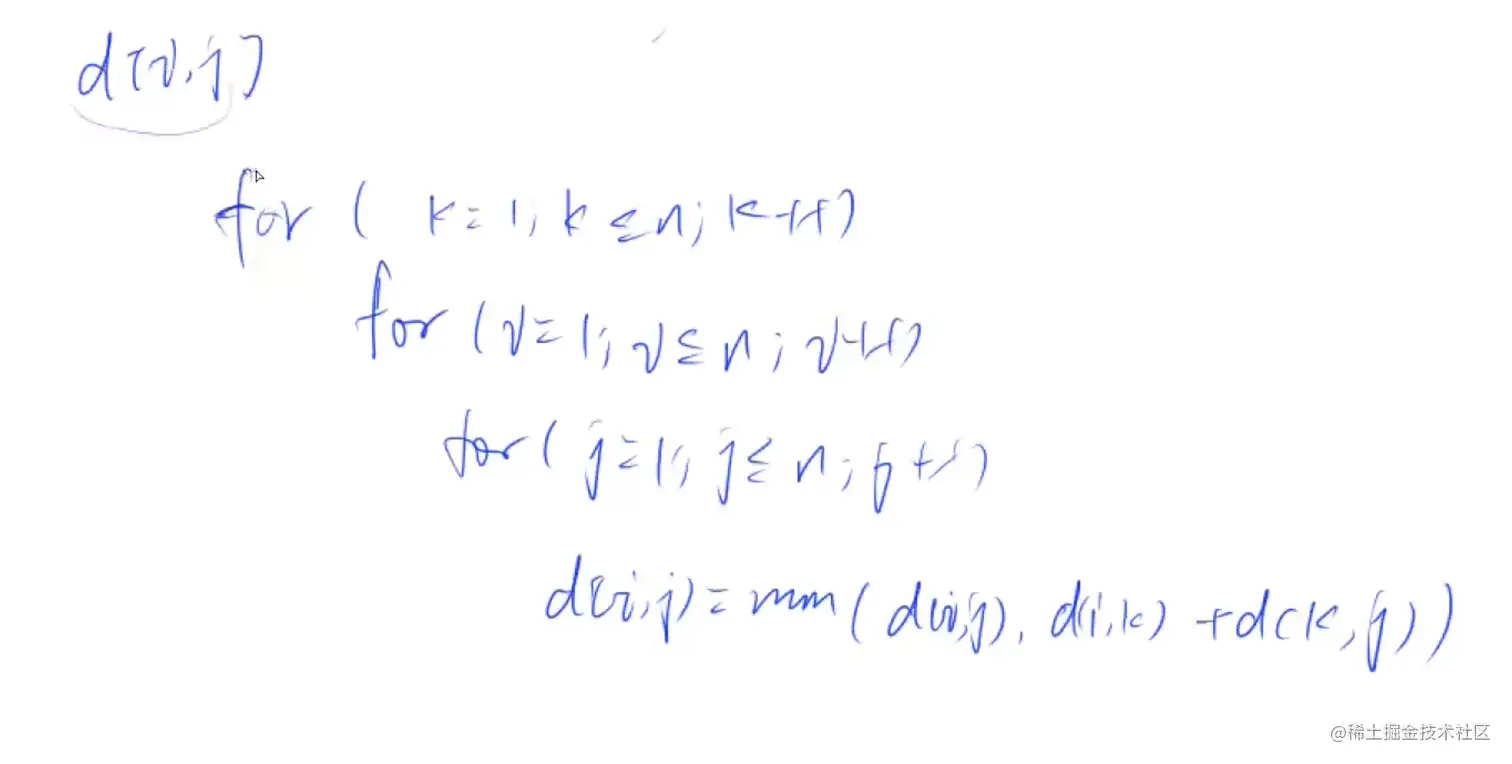 d[i,j]
for ( k=1, k≤n; k++)
for (i=1; i≤n; i++)
for( j=1; j≤n; j++)
d(i,j)=min(d(i,j), d(i,k)+d(k,j))
@稀土掘金技术社区